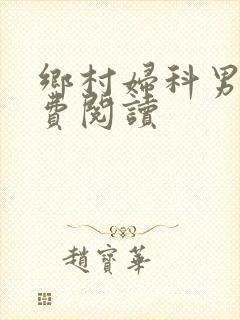 鄉村婦科男
費閱讀
趙寶華